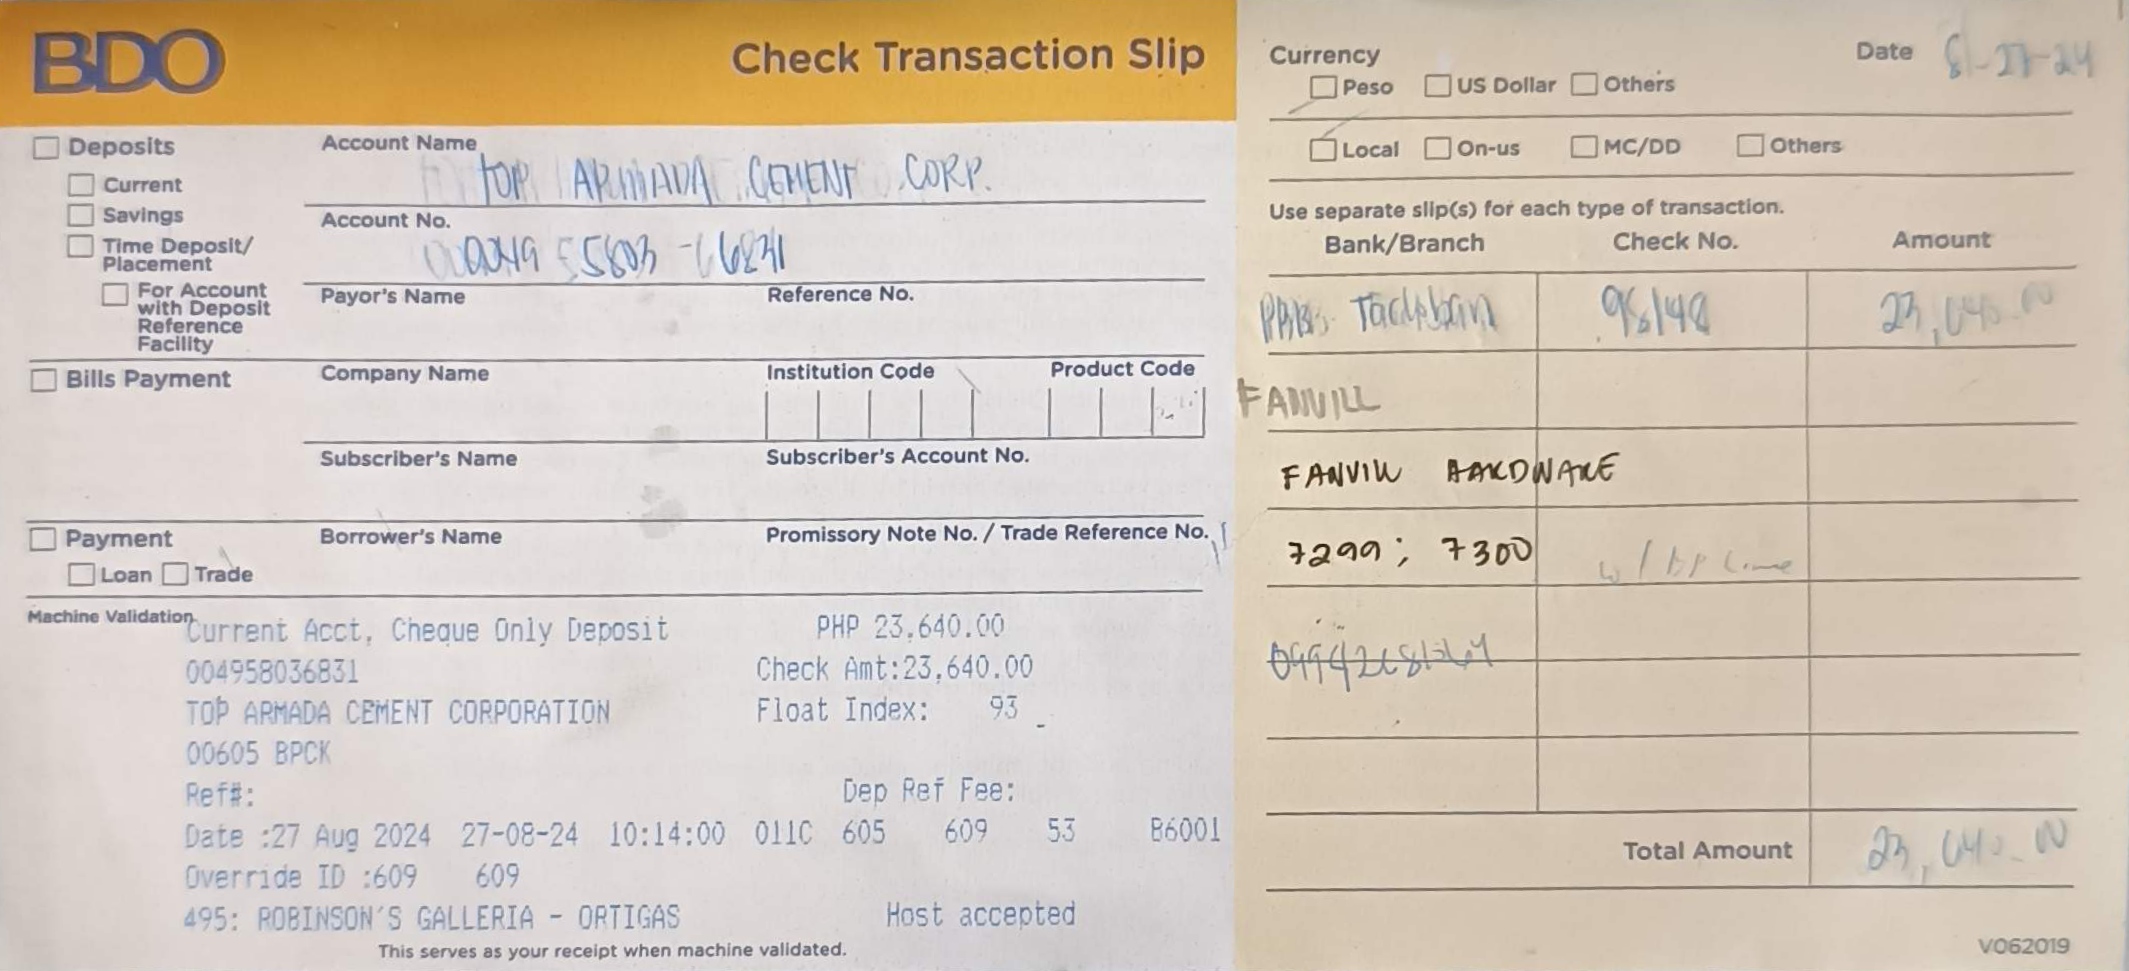 BDO
Check Transaction Slip
Deposits
Current
Savings
Time Deposit/
Placement
For Account
with Deposit
Reference
Facility
Account Name
TOP ARMADA CEMENT CORP.
Account No.
Payor's Name Reference No.
Bills Payment
Company Name Institution Code Product Code
Subscriber's Name Subscriber's Account No.
Payment
Loan Trade
Borrower's Name Promissory Note No. / Trade Reference No.
Machine Validation
Current Acct, Cheque Only Deposit PHP 23,640.00
004958036831 Check Amt:23,640.00
TOP ARMADA CEMENT CORPORATION Float Index: 93
00605 BPCK
Ref#: Dep Ref Fee:
Date :27 Aug 2024 27-08-24 10:14:00 011C 605 609 53 B6001
Override ID :609 609
495: ROBINSON'S GALLERIA - ORTIGAS Host accepted
This serves as your receipt when machine validated.
Currency Date 8-27-24
Peso US Dollar Others
Local On-us MC/DD Others
Use separate slip(s) for each type of transaction.
Bank/Branch Check No. Amount
23,640.00
FANVILL
FANVILL HARDWARE
7299; 7300
Total Amount 23,640.00
V062019